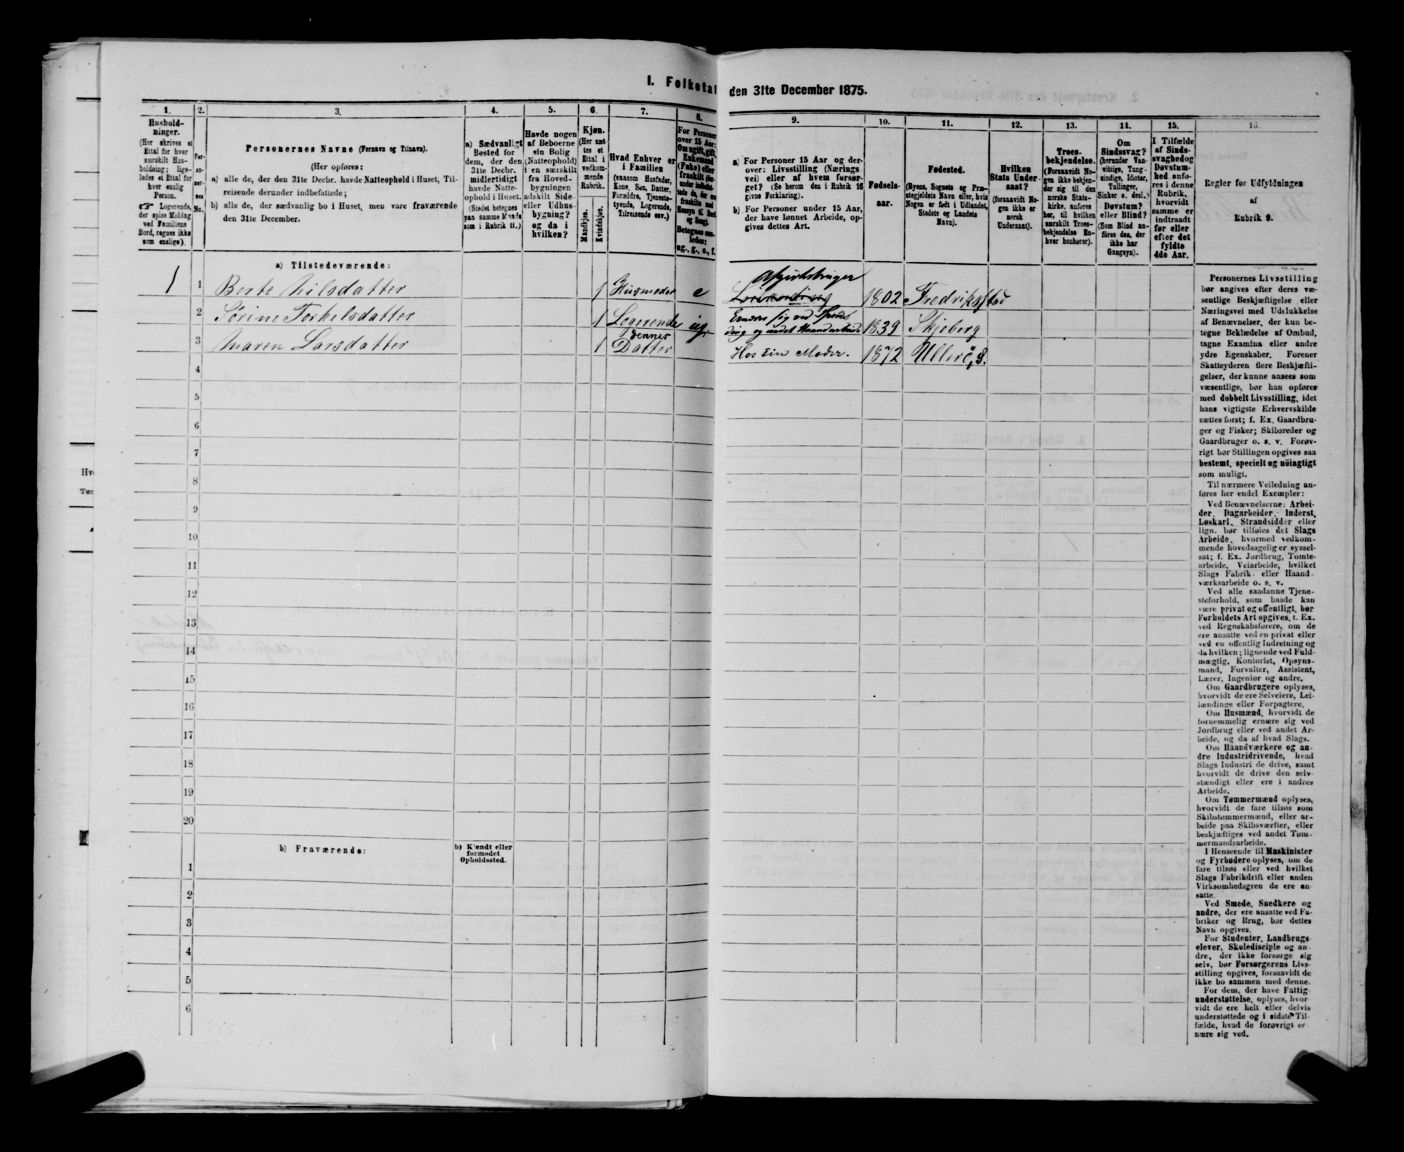 I. Folketal
den 31te December 1875.
1.
Hushold-
ninger.
(Her skrives et
Ettal for hver
særskilt Hus-
holdning; lige-
ledes et Ettal for
hver enslig
Person.
Logerende,
der spise Middag
ved Familiens
Bord, regnes ikke
som enslige).
2.
Per-
so-
ner-
nes
No.
3.
Personernes Navne (Fornavn og Tilnavn).
(Her opføres:
a) alle de, der den 31te Decbr. havde Natteophold i Huset, Til-
reisende derunder indbefattede;
b) alle de, der sædvanlig bo i Huset, men vare fraværende
den 31te December.
4.
a) Sædvanligt
Bosted for
dem, der den
31te Decbr.
midlertidigt
havde Natte-
ophold i Huset.
(Stedet betegnes
paa samme Maade
som i Rubrik 11.)
5.
Havde nogen
af Beboerne
sin Bolig
(Natteophold)
i en særskilt
fra Hoved-
bygningen
adskilt Side-
eller Udhus-
bygning?
og da i
hvilken?
6.
Kjøn.
(Her sæt-
tes et
Ettal i
vedkom-
mende
Rubrik.
Mandkjøn.
Kvindekjøn.
7.
Hvad Enhver er
i Familien
(saasom Husfader,
Kone, Søn, Datter,
Forældre, Tjeneste-
tyende, Logerende,
Tilreisende osv.)
8.
For Personer
over 15 Aar:
Om ugift, gift,
Enkemand
(Enke) eller
fraskilt
Betegnes saa-
ledes:
ug., g., e., f.
9.
a) For Personer 15 Aar og der-
over: Livsstilling (Nærings-
vei) eller af hvem forsør-
get? (Se herom den i Rubrik 16
givne Forklaring).
b) For Personer under 15 Aar,
der have lønnet Arbeide, op-
gives dettes Art.
10.
Fødsels-
aar.
11.
Fødested.
(Byens, Sognets og Præ-
stegjeldets Navn eller, hvis
Nogen er født i Udlandet,
Stedets og Landets
Navn).
12.
Hvilken
Stats Under-
saat?
(forsaavidt No-
gen ikke er
norsk
Undersaat).
13.
Troes-
bekjendelse.
(Forsaavidt No-
gen ikke bekjen-
der sig til den
norske Stats-
kirke, anføres
her, til hvilken
særskilt Troes-
bekjendelse En-
hver henhører).
14.
Om
Sindssvag?
(herunder Van-
vittige, Tung-
sindige, Idioter,
Tullinger,
Sinker o. desl.)
Døvstum?
eller Blind?
(Som Blind an-
føres den, der
ikke har
Gangsyn).
15.
I Tilfælde
af Sinds-
svaghed og
Døvstum-
hed anfø-
res i denne
Rubrik,
hvorvidt
samme er
indtraadt
før eller
efter det
fyldte
4de Aar.
16.
Regler for Udfyldningen
af
Rubrik 9.
a) Tilstedeværende:
1 1 Berte Nilsdatter 1 Husmoder e Afgirtsbruger 1802 Fredrikstad
2 Sørine Torkelsdatter 1 Logerende ug. Ernærer sig ved Spin-
ding og andet Haandarbeide 1839 Skjeberg
3 Maren Larsdatter 1 dennes
Datter Hos sin Moder. 1872 Ullerø, S.
4
5
6
7
8
9
10
11
12
13
14
15
16
17
18
19
20
b) Fraværende:
b) Kjendt eller
formodet
Opholdssted.
1
2
3
4
5
6
Personernes Livsstilling
bør angives efter deres væ-
sentlige Beskjæftigelse eller
Næringsvei med Udelukkelse
af Benævnelser, der kun be-
tegne Beklædelse af Ombud,
tagne Examina eller andre
ydre Egenskaber. Forener
Skatteyderen flere Beskjæfti-
gelser, der kunne ansees som
væsentlige, bør han opføres
med dobbelt Livsstilling, idet
hans vigtigste Erhvervskilde
sættes først; f. Ex. Gaardbru-
ger og Fisker; Skibsreder og
Gaardbruger o. s. v. Forøv-
rigt bør Stillingen opgives saa
bestemt, specielt og nøiagtigt
som muligt.
Til nærmere Veiledning an-
føres her endel Exempler:
Ved Benævnelserne: Arbei-
der, Dagarbeider, Inderst,
Løskarl, Strandsidder eller
lign. bør tilføies det Slags
Arbeide, hvormed vedkom-
mende hovedsagelig er syssel-
sat; f. Ex. Jordbrug, Tomte-
arbeide, Veiarbeide, hvilket
Slags Fabrik- eller Haand-
værksarbeide o. s. v.
Ved alle saadanne Tjene-
steforhold, som baade kan
være privat og offentligt, bør
Forholdets Art opgives, t. Ex.
ved Regnskabsførere, om de
ere ansatte ved en privat eller
ved en offentlig Indretning og
da hvilken; lignende ved Fuld-
mægtig, Kontorist, Opsyns-
mand, Forvalter, Assistent,
Lærer, Ingeniør og andre.
Om Gaardbrugere oplyses,
hvorvidt de ere Selveiere, Lei-
lændinge eller Forpagtere.
Om Husmænd, hvorvidt de
fornemmelig ernære sig ved
Jordbrug eller ved andet Ar-
beide, og da af hvad Slags.
Om Haandværkere og an-
dre Industridrivende, hvad
Slags Industri de drive, samt
hvorvidt de drive den selv-
stændigt eller ere i andres
Arbeide.
Om Tømmermænd oplyses,
hvorvidt de fare tilsøs som
Skibstømmermænd, eller ar-
beide paa Skibsværfter, eller
beskjæftiges ved andet Tøm-
mermandsarbeide.
I Henseende til Maskinister
og Fyrbødere oplyses, om de
fare tilsøs eller ved hvilket
Slags Fabrikdrift eller anden
Virksomhedsgren de ere an-
satte.
Ved Smede, Snedkere og
andre, der ere ansatte ved Fa-
briker og Brug, bør dettes
Navn opgives.
For Studenter, Landbrugs-
elever, Skoledisciple og an-
dre, der ikke forsørge sig
selv, bør Forsørgerens Livs-
stilling opgives, forsaavidt de
ikke bo sammen med denne.
For dem, der have Fattig-
understøttelse, oplyses, hvor-
vidt de ere helt eller delvis
understøttede og i sidste Til-
fælde, hvad de forøvrigt er-
nære sig ved.